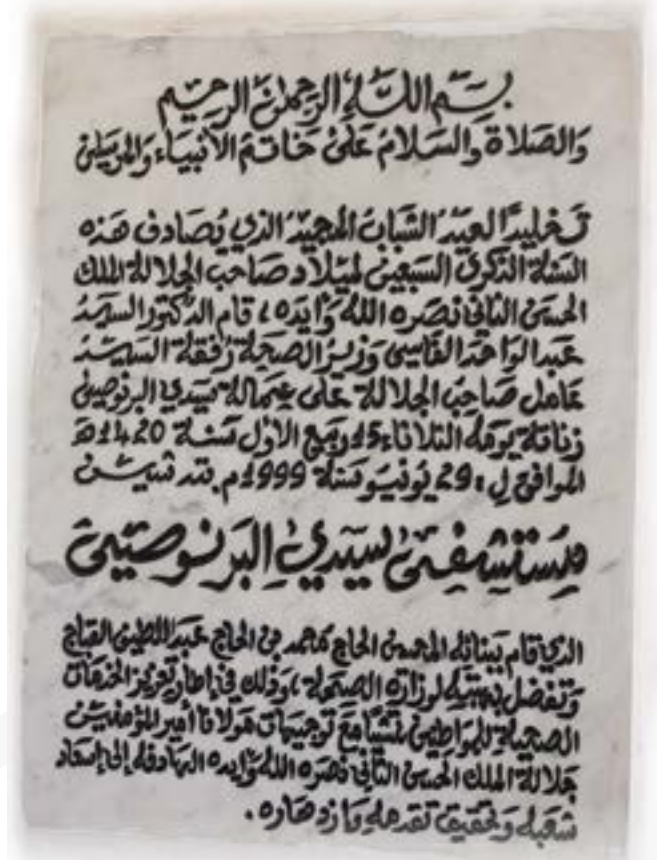 بسم الله الرحمن الرحيم
والصلاة والسلام على خاتم الأنبياء والمرسلين
تخليدا لعيد الشباب المجيد الذي يصادف هذه
السنة الذكرى السبعين لميلاد صاحب الجلالة الملك
الحسن الثاني نصره الله وأيده، قام الدكتور السيد
عبد الواحد الفاسي وزير الصحة رفقة السيد
عامل صاحب الجلالة على عمالة سيدي البرنوصي
زناتة يومه الثلاثاء 15 ربيع الأول سنة 1420 هـ
الموافق ل: 29 يونيو سنة 1999 م بتدشين
مستشفى سيدي البرنوصي
الذي قام ببنائه المحسن الحاج محمد بن الحاج عبد اللطيف القباج
وتفضل بهبته لوزارة الصحة، وذلك في إطار تعزيز الخدمات
الصحية للمواطنين تمشيا مع توجيهات مولانا أمير المؤمنين
جلالة الملك الحسن الثاني نصره الله وأيده الهادفة إلى إسعاد
شعبه وتحقيق تقدمه وازدهاره.